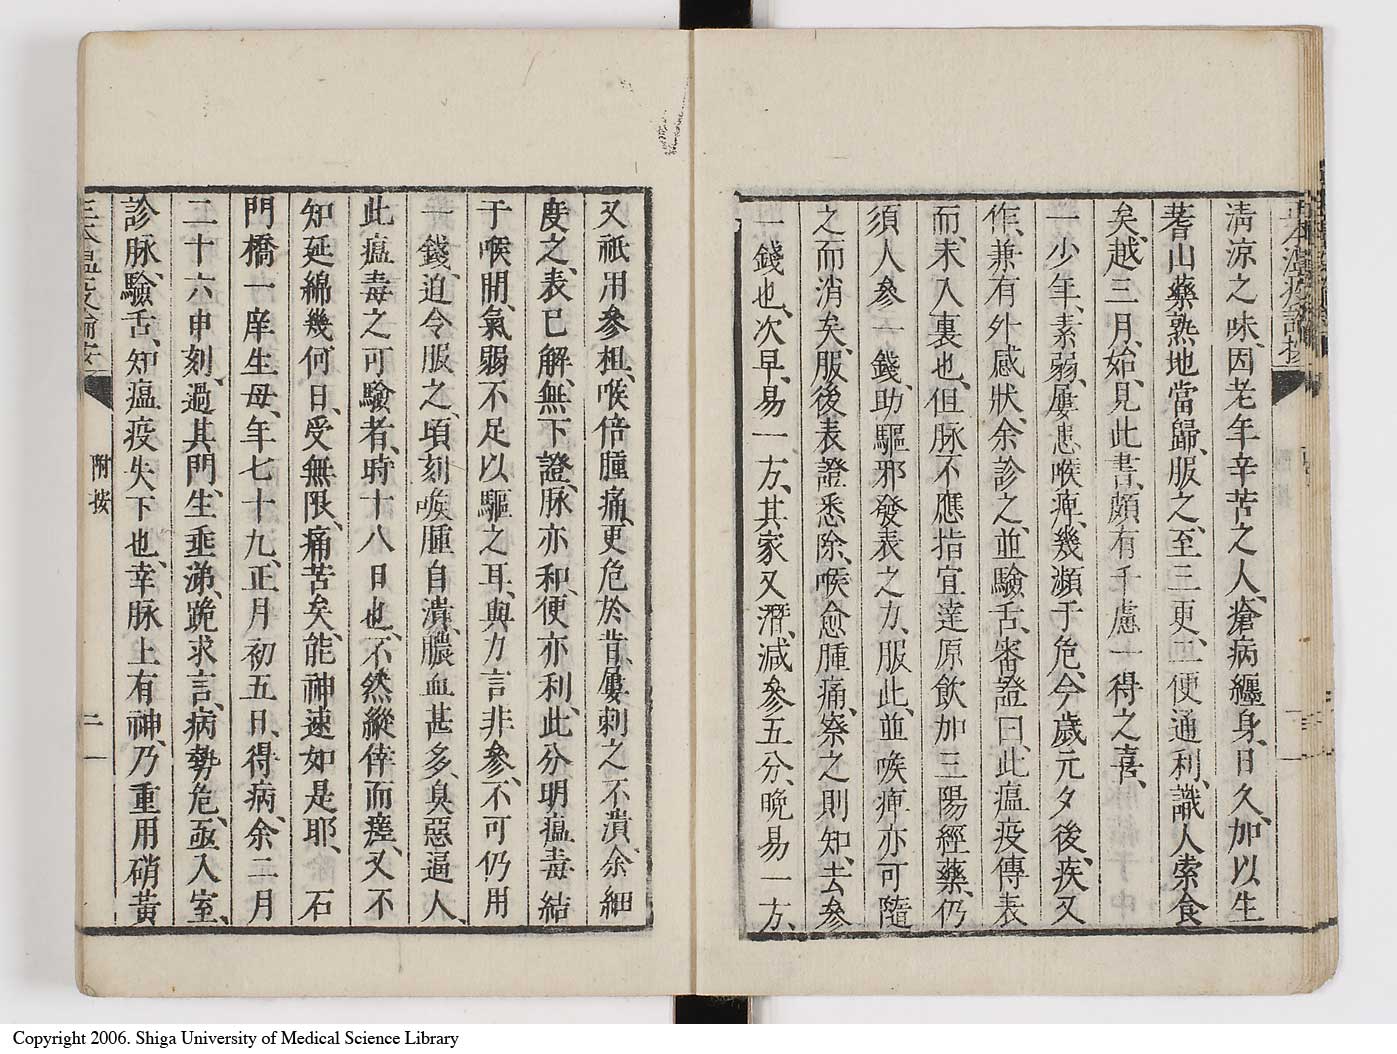 清涼之味、因老年辛苦之人、瘡病纏身、日久、加以生
蓍山藥熟地當歸、服之、至三更、二便通利、識人索食
矣、越三月、始見此書、頗有千慮一得之喜、
一少年、素弱、屢患喉痺、幾瀕于危、今歲元夕後、疾又
作、兼有外感狀、余診之、並驗舌、審證曰、此瘟疫傳表
而、未入裏也、但脉不應指宜達原飲加三陽經藥、仍
須人參一錢、助驅邪發表之力、服此、並喉痺亦可隨
之而消矣、服後表證悉除、喉愈腫痛、察之則知、去參
一錢也、次早、易一方、其家又濳、減參五分、晚易一方、
又祇用參柤、喉倍腫痛、更危於昔、屢刺之不潰、余細
度之、表已解、無下證、脉亦和、便亦利、此分明瘟毒結
于喉間、氣弱不足以驅之耳、與力言非參、不可仍用
一錢、迫令服之、頃刻喉腫自潰、膿血甚多、臭惡逼人、
此瘟毒之可驗者、時十八日也、不然縱倖而瘥、又不
知延綿幾何日、受無限痛苦矣、能神速如是耶、　石
門橋一庠生母、年七十九、正月初五日、得病、余二月
二十六申刻、過其門、生垂涕、跪求言、病勢危、亟入室、
診脉、驗舌、知瘟疫失下也、幸脉上有神、乃重用硝黃
附按
二一